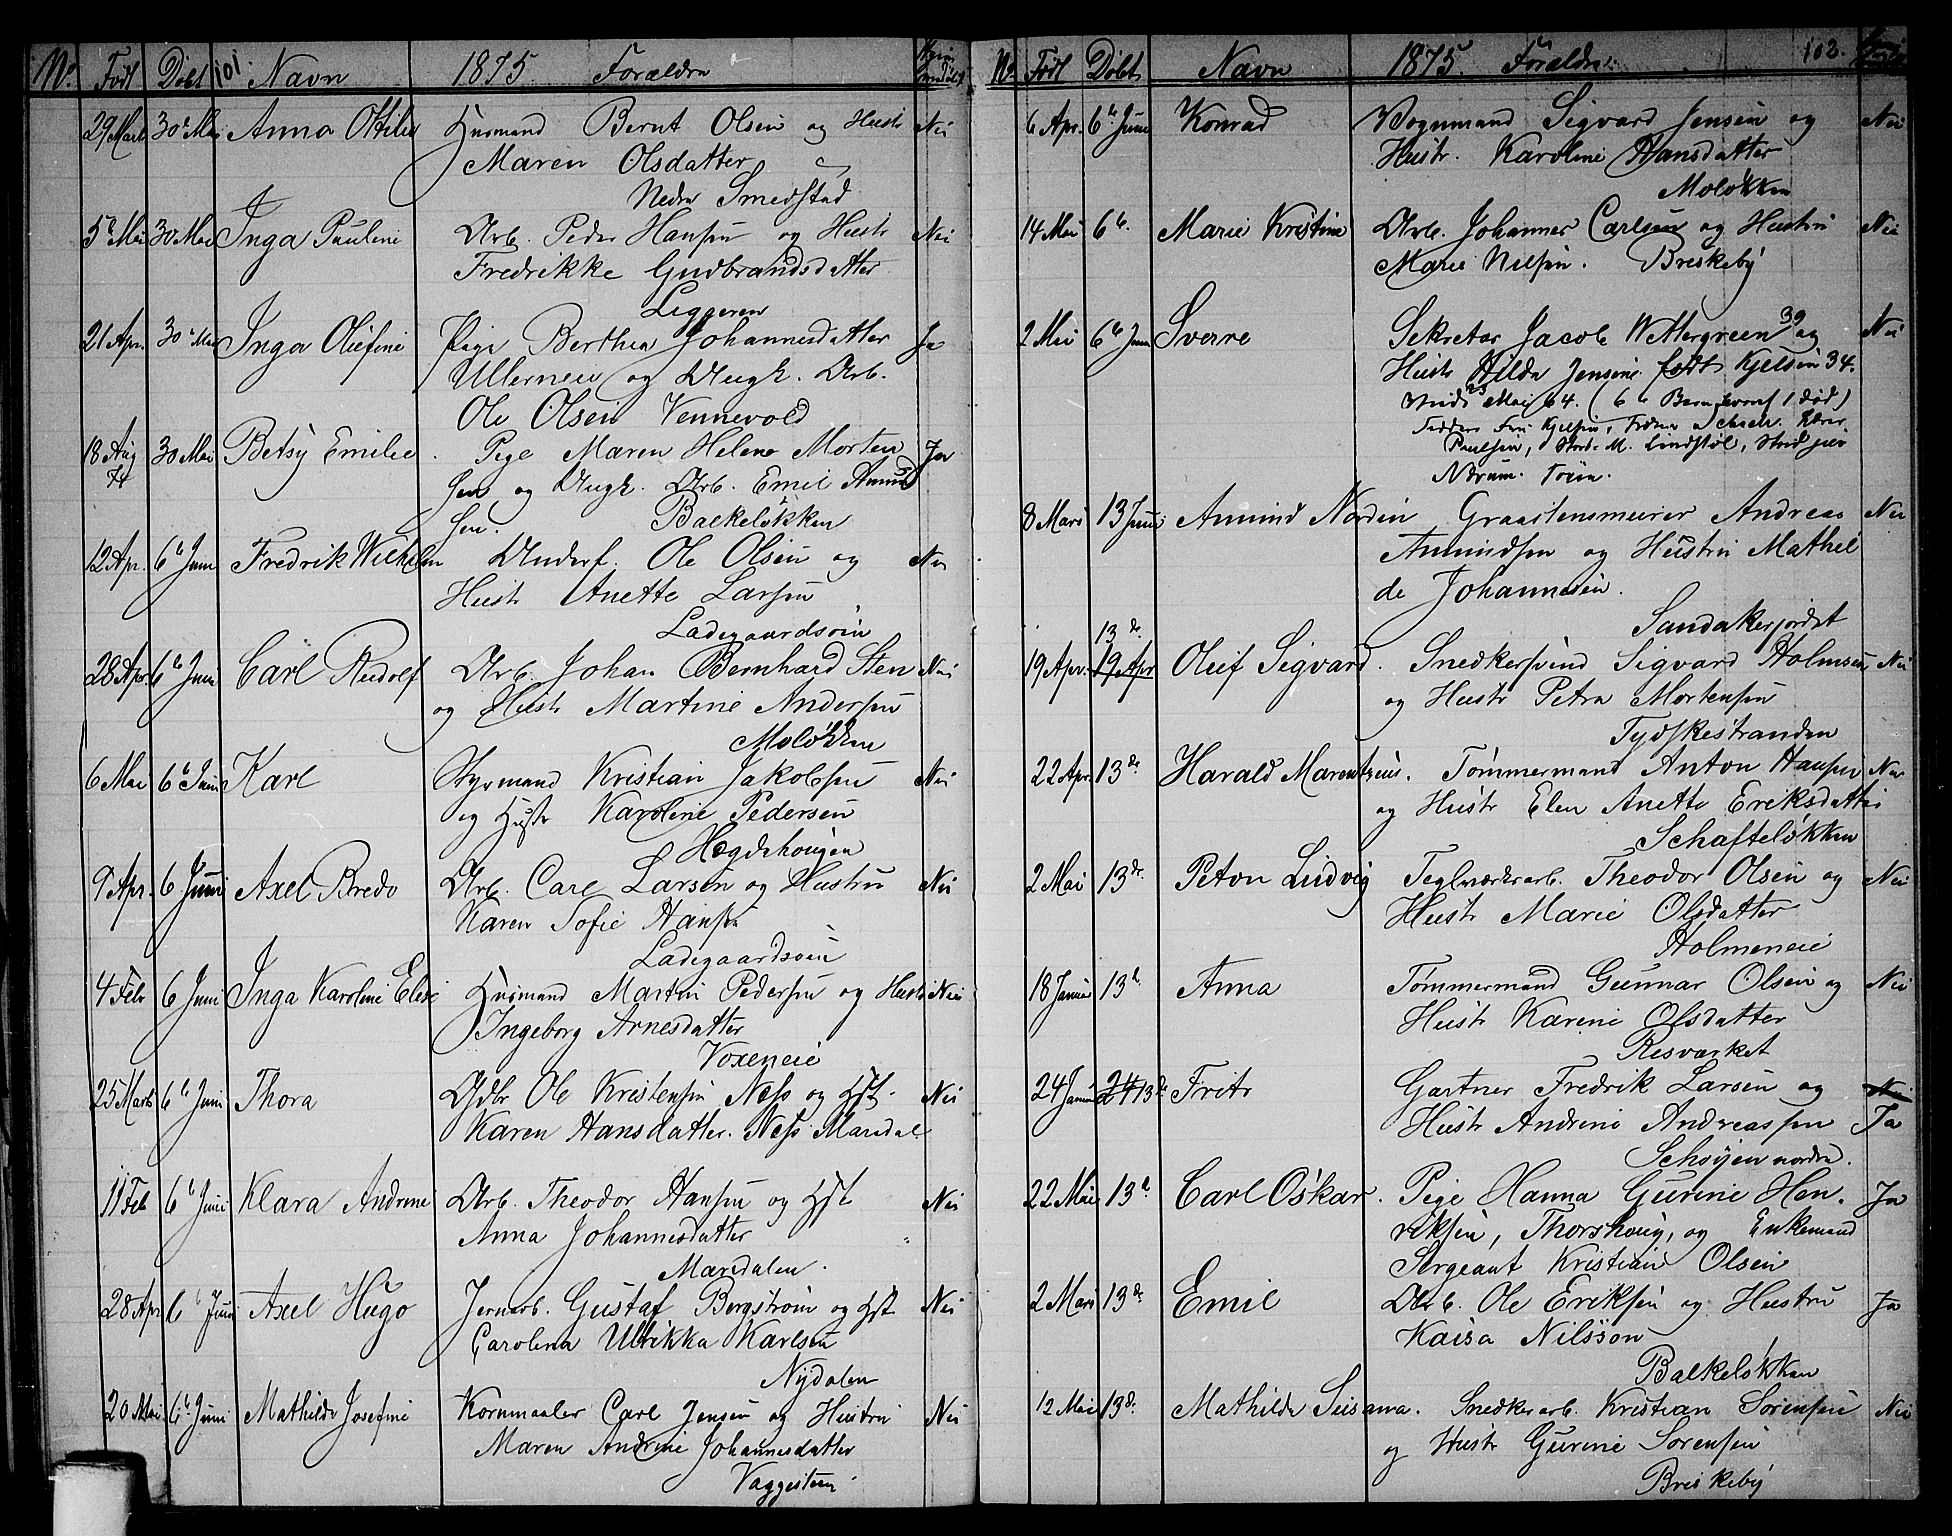 No Født Døbt 101. Navn 1875 Forældre
29 Marts 30te Mai Anna Ottilie Husmand Bernt Olsen og Hustr Nei
Maren Olsdatter
Nedre Smedstad
5te Mai 30 Mai Inga Pauline Arb. Peder Hansen og Hustr Nei
Fredrikke Gudbrandsdatter
Liggeren
21 Apr. 30te Mai Inga Olefine Pige Berthea Johannesdatter Ja
Ullerneie og Ungk. Arb.
Ole Olsen Vennevold
18 Aug 74 30 Mai Betsy Emilie Pige Maren Helene Morten Ja
sen og Ungk. Arb. Emil Amund
sen. Balkeløkken
12 Apr. 6te Juni Fredrik Wilhelm Underof. Ole Olsen og Nei
Hustr Anette Larsen
Ladegaardsøen
28 Apr 6te Juni Carl Rudolf Arb. Johan Bernhard Sten Nei
og Hustr Martine Andersen
Moløkken
6 Mai 6te Juni Karl Styrmand Kristian Jakobsen Nei
og Hustr Karoline Pedersen
Høgdehougen
9 Apr. 6 Juni Axel Bredo Arb. Carl Larsen og Hustru Nei
Karen Sofie Hansen
Ladegaardsøen
4 Febr 6 Juni Inga Karoline Elise Husmand Martin Pedersen og Hustr Nei
Ingeborg Arnesdatter
Voxeneie
25 Marts 6te Juni Thora Gdbr Ole Kristensen Næss og Hst. Nei
Karen Hansdatter. Næss Maridal
11 Feb 6te Juni Klara Andrine Arb. Theodor Hansen og Hst Nei
Anna Johannesdatter
Maridalen.
28 Apr 6te Juni Axel Hugo Jernarb. Gustaf Bergstrøm og Hst Nei
Carolina Ulrikka Karlsen
Nydalen
20 Mai 6te Juni Mathilde Josefine Kornmaaler Carl Jensen og Hustru Nei
Maren Andrine Johannesdatter
Vaggesteen
No Født Døbt Navn 1875. Forældre. 102.
6 Apr. 6te Juni Konrad Vognmand Sigvard Jensen og Nei
Hustr. Karoline Hansdatter
Moløkken
14 Mai 6te. Marie Kristine Arb. Johannes Carlsen og Hustru Nei
Marie Nilsen. Briskeby
2 Mai 6te Juni Sverre Sekretær Jacob Wettergreen 39 og Nei
Hustr Hilda Jensine født Kjelsen 34.
viede 23 Mai 64. (6te Barn hvoraf 1 død)
Faddere Fru Kjelsen, Frøken Lærer
Paulsen, Stud. M. Lindstøl, Stud. jur
Nærum.
8 Mars 13 Juni Amund Nordin Graastensmurer Andreas Nei
Amundsen og Hustru Mathil
de Johannesen.
Sandakerjordet
19 Apr. 13de 19 Apr Oluf Sigvard. Snedkersvend Sigvard Holmsen Nei
og Hustr Petra Mortensen
Tydskestranden
22 Apr 13de Harald Marentzius. Tømmermand Anton Hansen Nei
og Hustr Elen Anette Eriksdatter
Schafteløkken
2 Mai 13de. Peton Ludvig Teglværksarb. Theodor Olsen og Nei
Hustr Marie Olsdatter
Holmeneie
18 Januar 13de Anna Tømmermand Gunnar Olsen og Nei
Hustr Karine Olsdatter
Risværket
24 Januar 24 13de Fritz Gartner Fredrik Larsen og Nei
Hustr Andrine Andreassen Ja
Schøyen nordre.
22 Mai 13de Carl Oskar. Pige Hanna Gurine Hen. Ja
riksen, Thorshoug, og Enkemand
Sergeant Kristian Olsen
2 Mars 13de Emil Arb. Ole Eriksen og Hustru Ja
Kaisa Nilsson
Balkeløkken
12 Mai 13de Mathilde Susanna. Snedkerarb. Kristian Sørensen Nei
og Hustr Gurine Sørensen
Briskeby